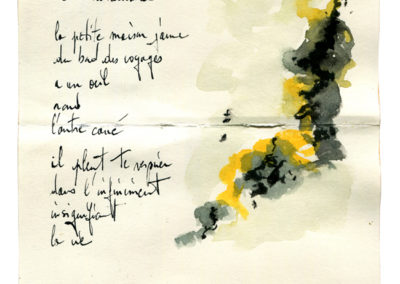 la petite maison jaune
du bord des voyages
a un oeil
rond
l'autre carré
il pleut te respirer
dans l'infiniment
insignifiant
la vie